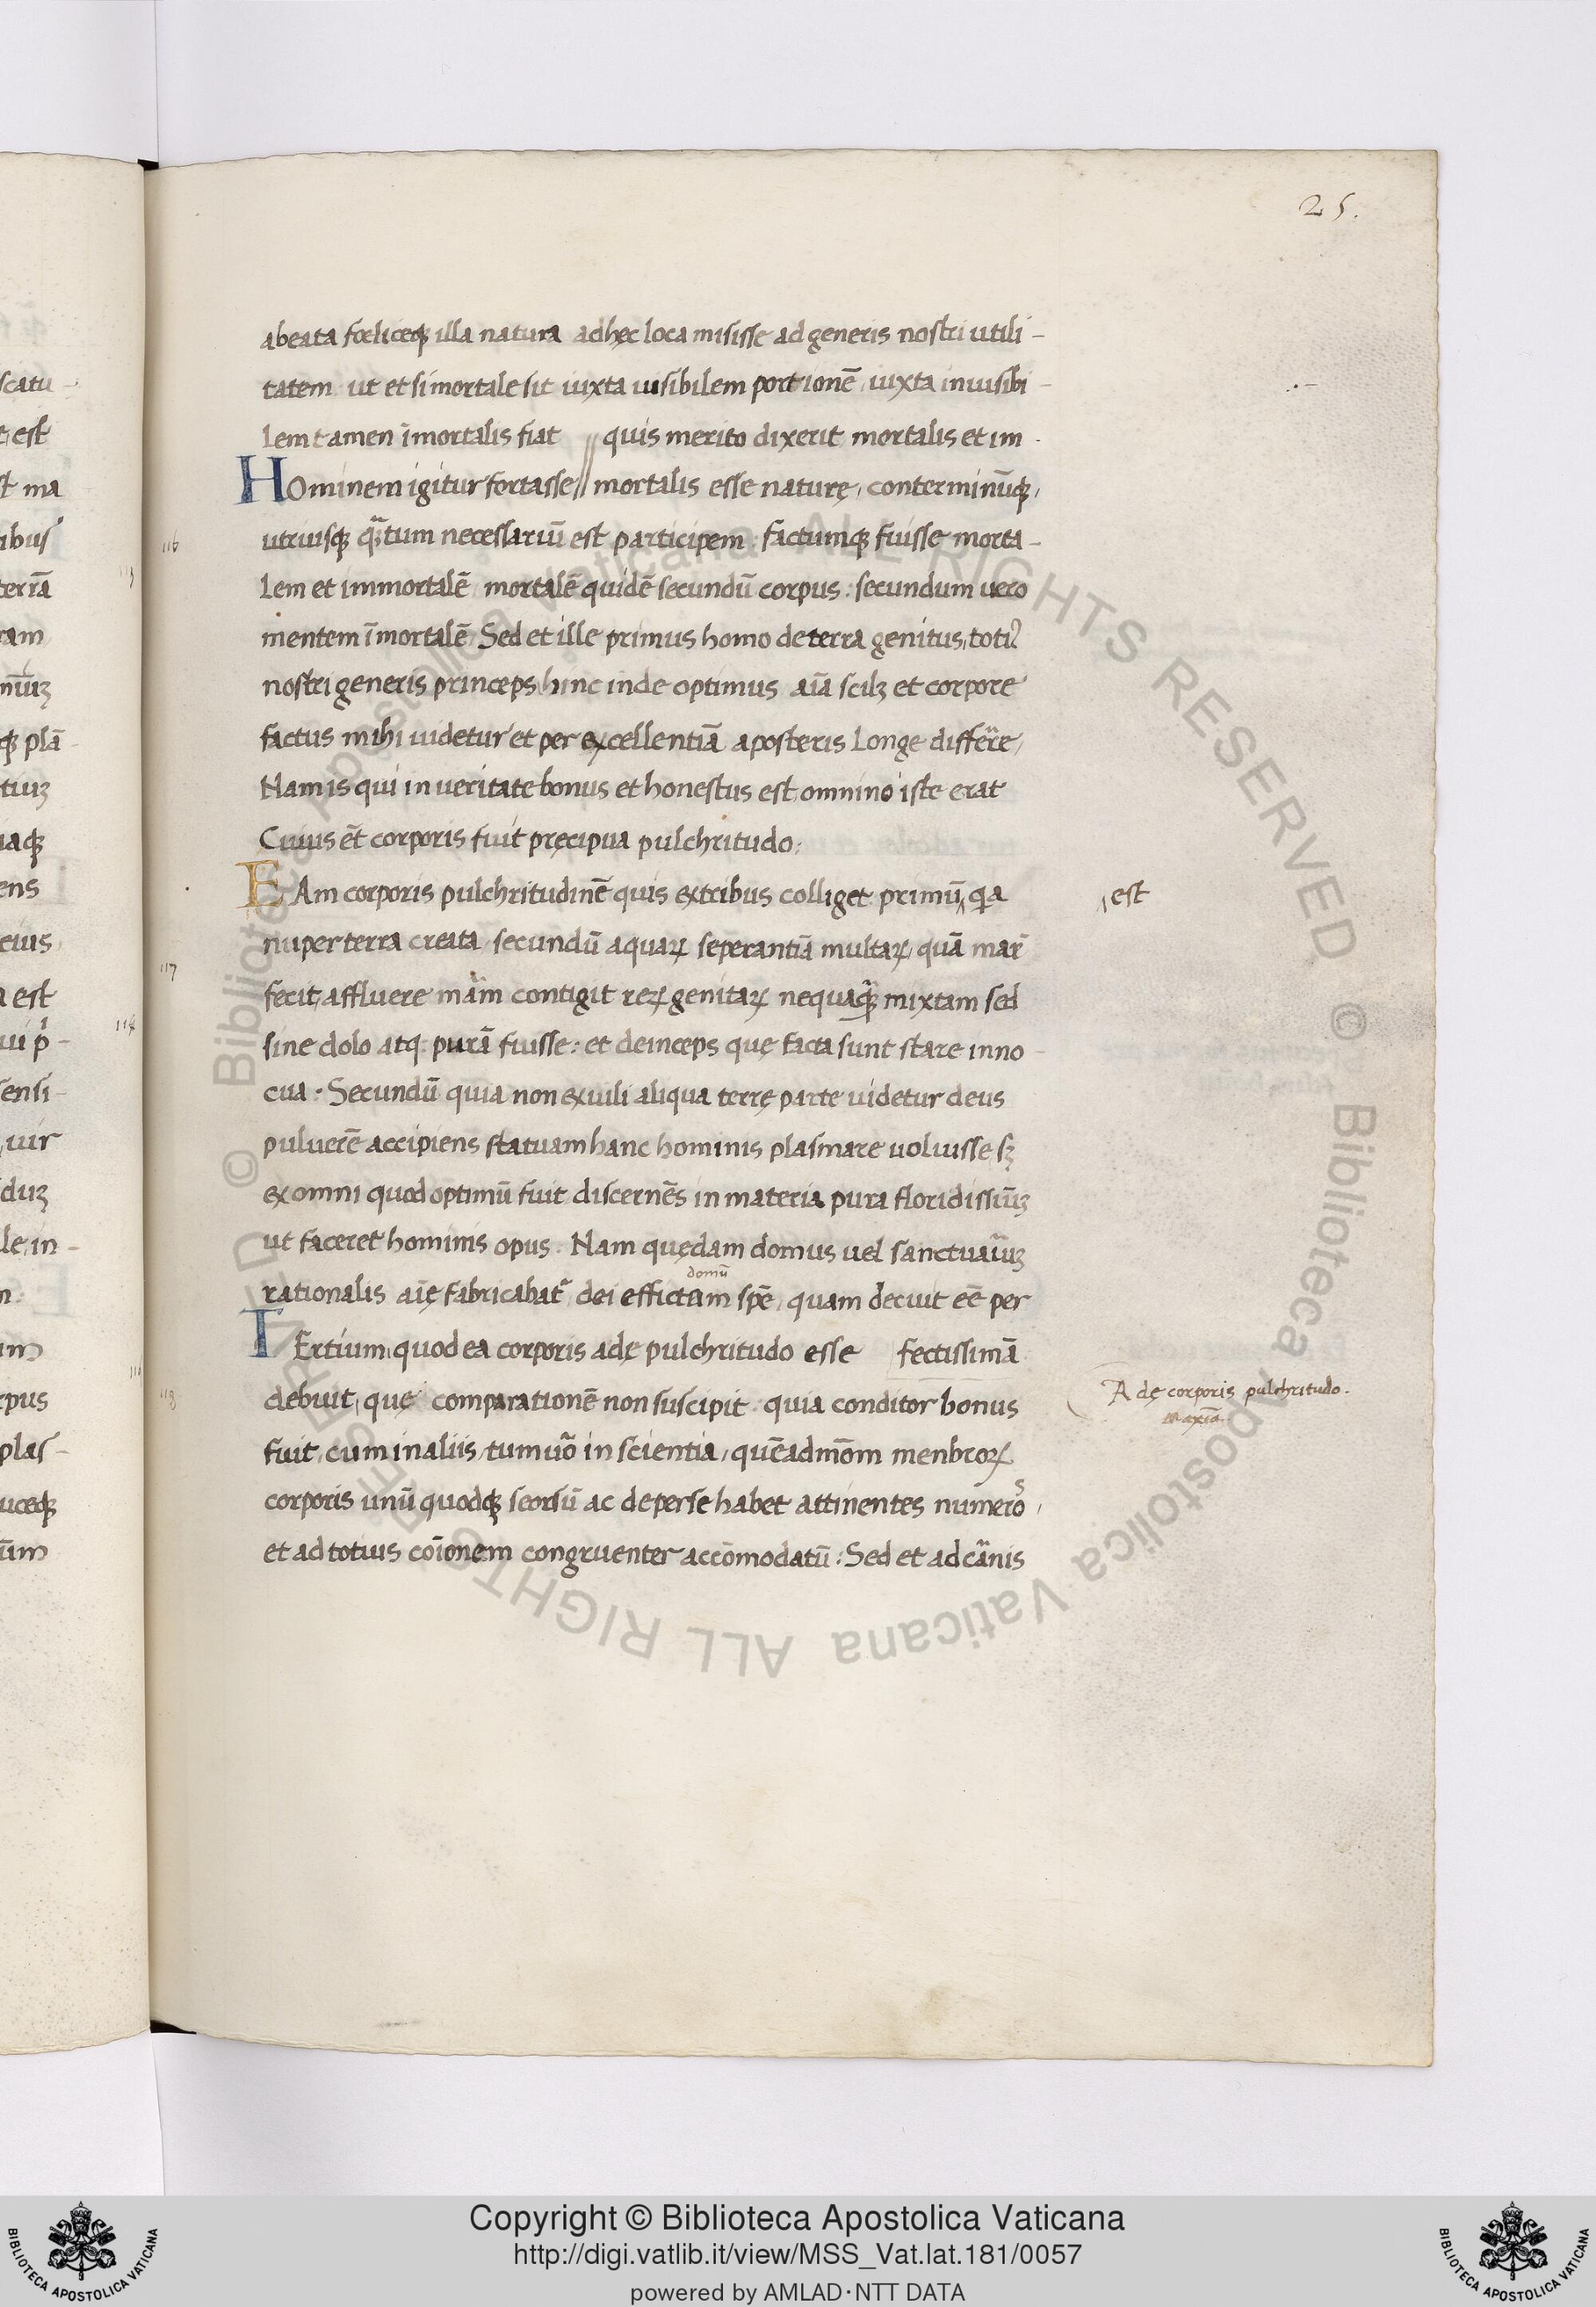 25.
abeata fœliceq illa natura adhęc loca misisse ad generis nostri utili-
tatem ut et si mortale sit iuxta uisibilem portionē iuxta inuisibi-
lem tamen īmortalis fiat // quis merito dixerit mortalis et im-
HOminem igitur fortasse // mortalis esse naturę, conterminūq,
utriusq qᵃtum necessariū est participem. factumq fuisse morta-
lem et immortalē mortalē quidē secundū corpus: secundum uero
mentem īmortalē Sed et ille primus homo de terra genitus, toti᷒
nostri generis princeps hinc inde optimus aīa scilꝫ et corpore
factus mihi uidetur et per excellentiā aposteris longe differ̄e,
Nam is qui in ueritate bonus et honestus est omnino iste erat
Cuius ēt corporis fuit pręcipua pulchritudo:
EAm corporis pulchritudinē quis ex tribus colliget primū qa
est
nuper terra creata secundū aquaꝝ seperantiā multaꝝ, quā mar̄
fecit, affluere mām contigit reꝝ genitaꝝ nequaq̄ mixtam sed
sine dolo atq. purā fiusse: et deinceps quę facta sunt stare inno
cua: Secundū quia non ex uili aliqua terrę parte uidetur deus
puluerē accipiens statuam hanc hominis plasmare uoluisse sꝫ
ex omni quod optimū fuit discernēs in materia pura floridissiūꝫ
ut faceret hominis opus. Nam quędam domus uel sanctuaiūꝫ
domū
rationalis aīę fabricabat᷒ dei effictam spē, quam decuit eē per
TErtium, quod ea corporis adę pulchritudo esse fectissimā
debuit, quę comparationē non suscipit quia conditor bonus
Adę corporis pulchritudo.
maxīa.
fuit, cum in aliis, tum uo᷃ in scientia, quēadmōm menbroꝝ
corporis unū quodq seorsū ac deperse habet attinentes numeros,
et ad totius coīonem congruenter accōmodatū: Sed et ad cānis
116
117
118
Copyright © Biblioteca Apostolica Vaticana
http://digi.vatlib.it/view/MSS_Vat.lat.181/0057
powered by AMLAD·NTT DATA
BIBLIOTECA APOSTOLICA VATICANA
BIBLIOTECA APOSTOLICA VATICANA
© Biblioteca Apostolica Vaticana ALL RIGHTS RESERVED © Biblioteca Apostolica Vaticana ALL RIGHTS RESERVED